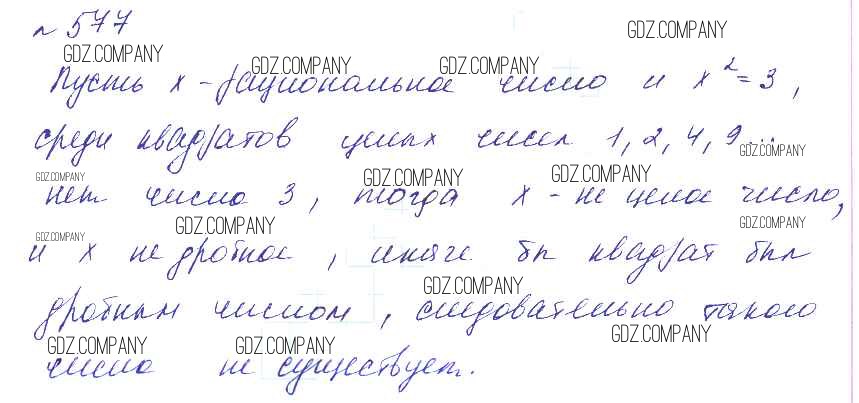 № 577
GDZ.COMPANY GDZ.COMPANY
GDZ.COMPANY GDZ.COMPANY
Пусть х - рациональное число и х² = 3,
среди квадратов целых чисел 1, 2, 4, 9...
GDZ.COMPANY
GDZ.COMPANY GDZ.COMPANY GDZ.COMPANY
нет числа 3, тогда х - не целое число,
GDZ.COMPANY GDZ.COMPANY GDZ.COMPANY
и х не дробное, иначе бы квадрат был
GDZ.COMPANY
дробным числом, следовательно такого
GDZ.COMPANY GDZ.COMPANY GDZ.COMPANY
числа не существует.